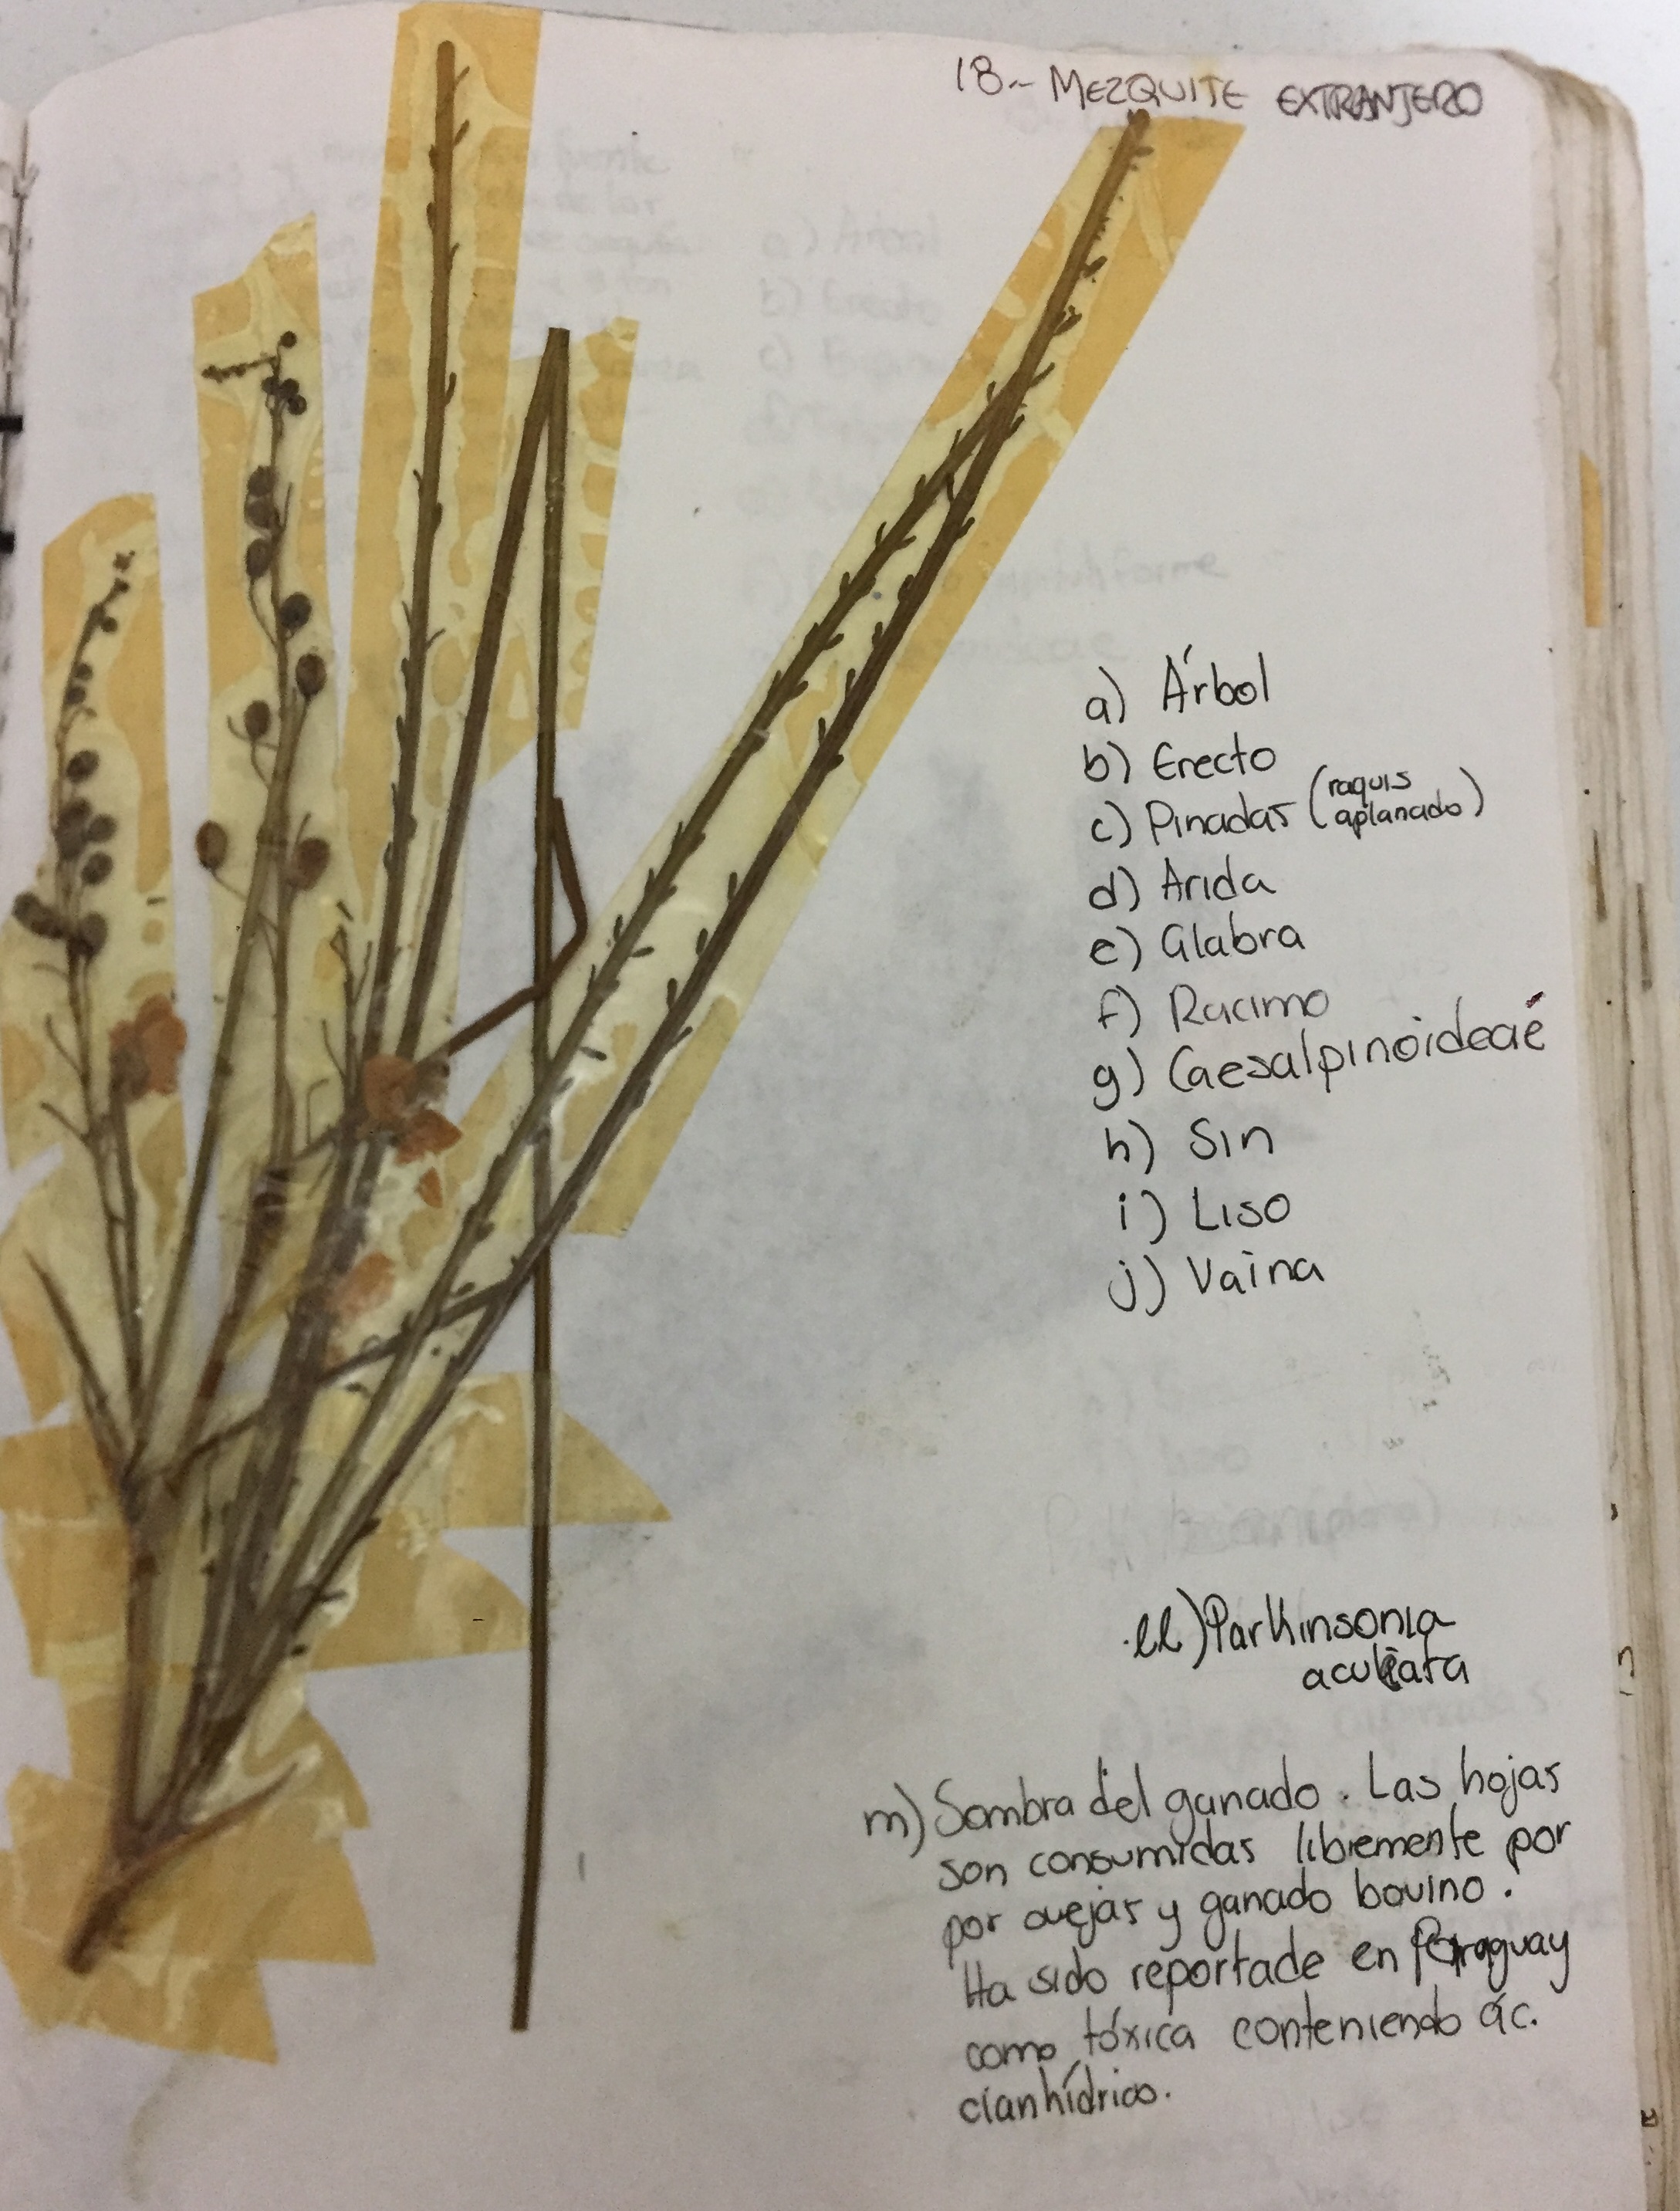 18.- MEZQUITE EXTRANJERO
a) Árbol
b) Erecto
c) Pinadas (raquis aplanado)
d) Arida
e) Glabra
f) Racimo
g) Caesalpinoideae
h) Sin
i) Liso
j) Vaina
ll) Parkinsonia
aculeata
m) Sombra del ganado. Las hojas
son consumidas libremente por
por ovejas y ganado bovino.
Ha sido reportade en Paraguay
como tóxica conteniendo ác.
cianhídrico.